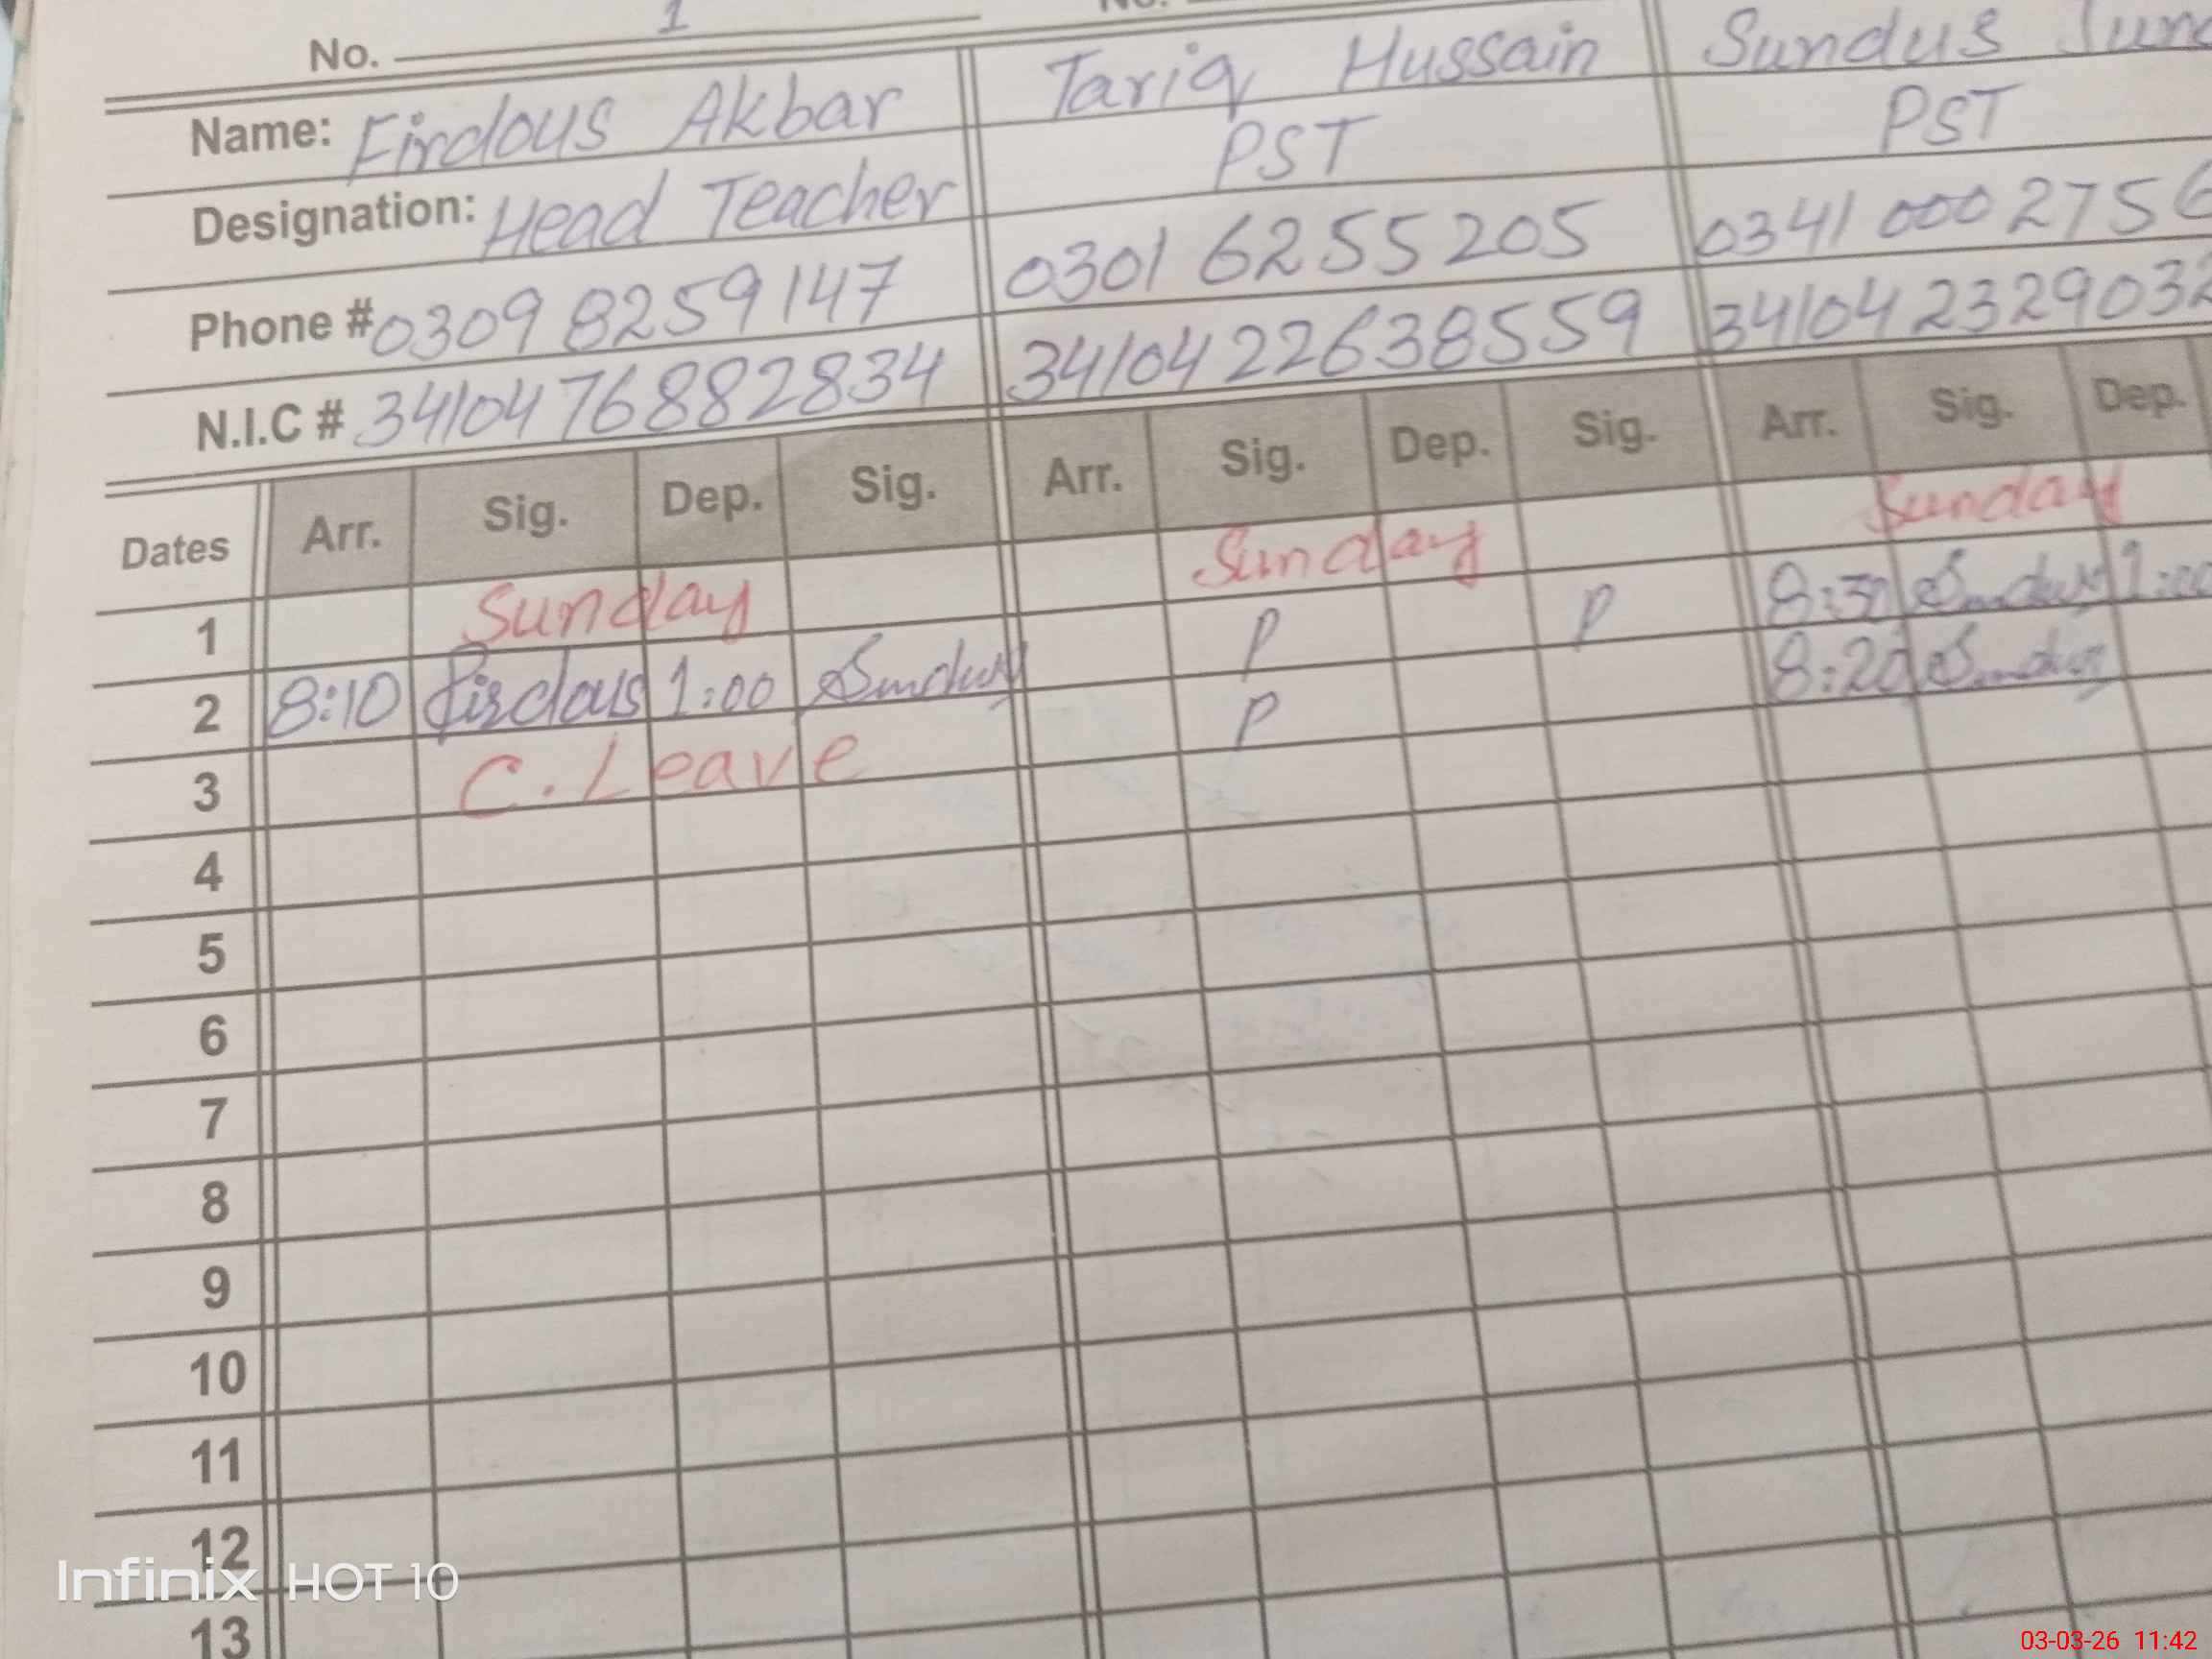 No. 1 No.
Name: Firdous Akbar Tariq Hussain Sundus
Designation: Head Teacher PST PST
Phone # 0309 8259147 0301 6255205 0341 000 2756
N.I.C # 34104 76882834 34104 22638559 34104 2329032
Dates Arr. Sig. Dep. Sig. Arr. Sig. Dep. Sig. Arr. Sig. Dep.
1 Sunday Sunday Sunday
2 8:10 Firdous 1:00 Sundus P P 8:30 Sundus 1:00
3 C. Leave P 8:20 Sundus
4
5
6
7
8
9
10
11
12
13
Infinix HOT 10
03-03-26 11:42